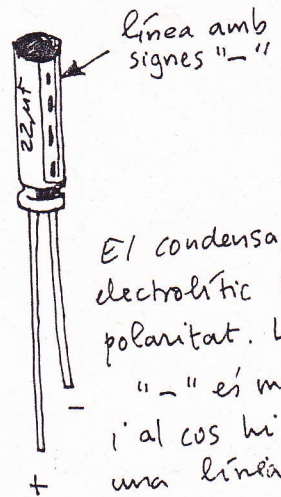 línea amb
signes "-"
22 µf
El condensa
electrolític
polaritat. L
"-" és m
i al cos hi
una línea
-
+